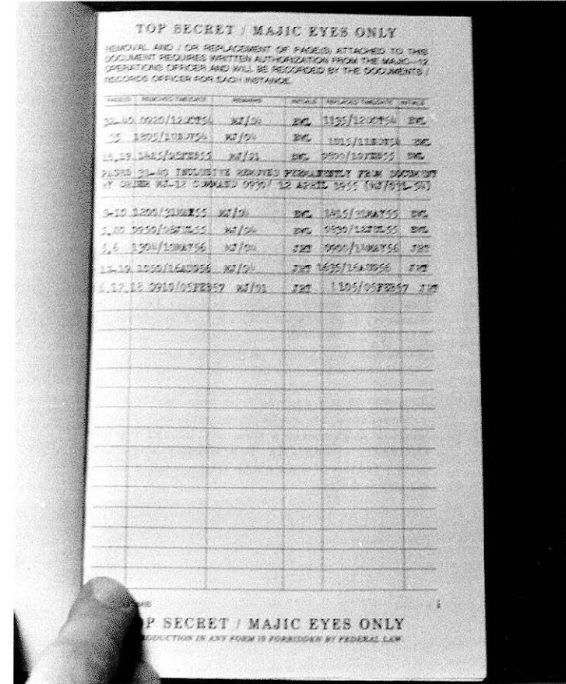 TOP SECRET / MAJIC EYES ONLY
REMOVAL AND / OR REPLACEMENT OF PAGE(S) ATTACHED TO THIS
DOCUMENT REQUIRES WRITTEN AUTHORIZATION FROM THE MAJIC—12
OPERATIONS OFFICER AND WILL BE RECORDED BY THE DOCUMENTS /
RECORDS OFFICER FOR EACH INSTANCE.
PAGE(S) REMOVED TIME/DATE REMARKS INITIALS REPLACED TIME/DATE INITIALS
0920/12OCT54 MJ/04 EWL 1135/12OCT54 EWL
MJ/04 EWL EWL
1425/05FEB55 MJ/01 EWL EWL
PAGES 31-40 INCLUSIVE REMOVED PERMANENTLY FROM DOCUMENT
BY ORDER MJ-12 COMMAND 0930/ 12 APRIL 1955
1200/31MAY55 MJ/04 EWL 1415/31MAY55 EWL
MJ/04 EWL EWL
5,6 1304/10MAY56 MJ/04 JRT JRT
1050/16AUG56 MJ/04 JRT 1635/16AUG56 JRT
0910/05FEB57 MJ/01 JRT 1105/05FEB57 JRT
i
TOP SECRET / MAJIC EYES ONLY
REPRODUCTION IN ANY FORM IS FORBIDDEN BY FEDERAL LAW